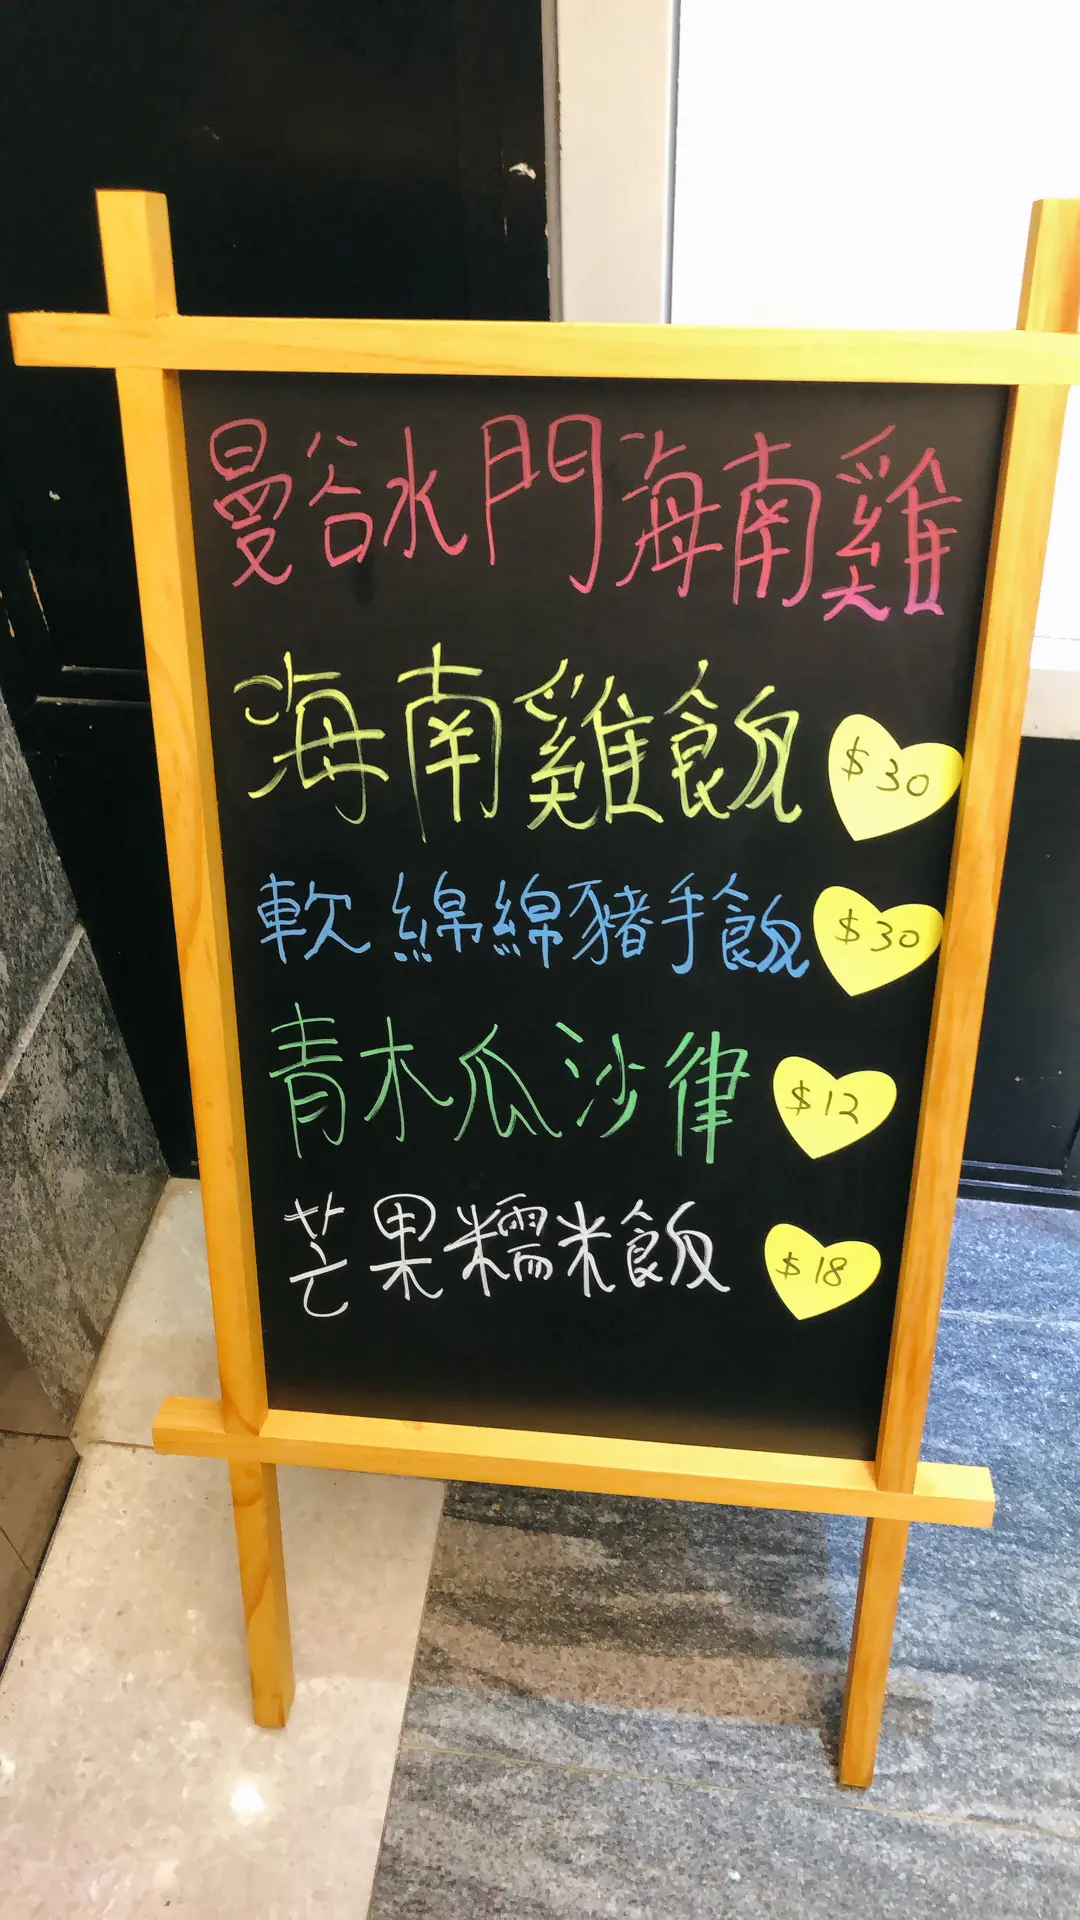 曼谷水門海南雞
海南雞飯 $30
軟綿綿豬手飯 $30
青木瓜沙律 $12
芒果糯米飯 $18